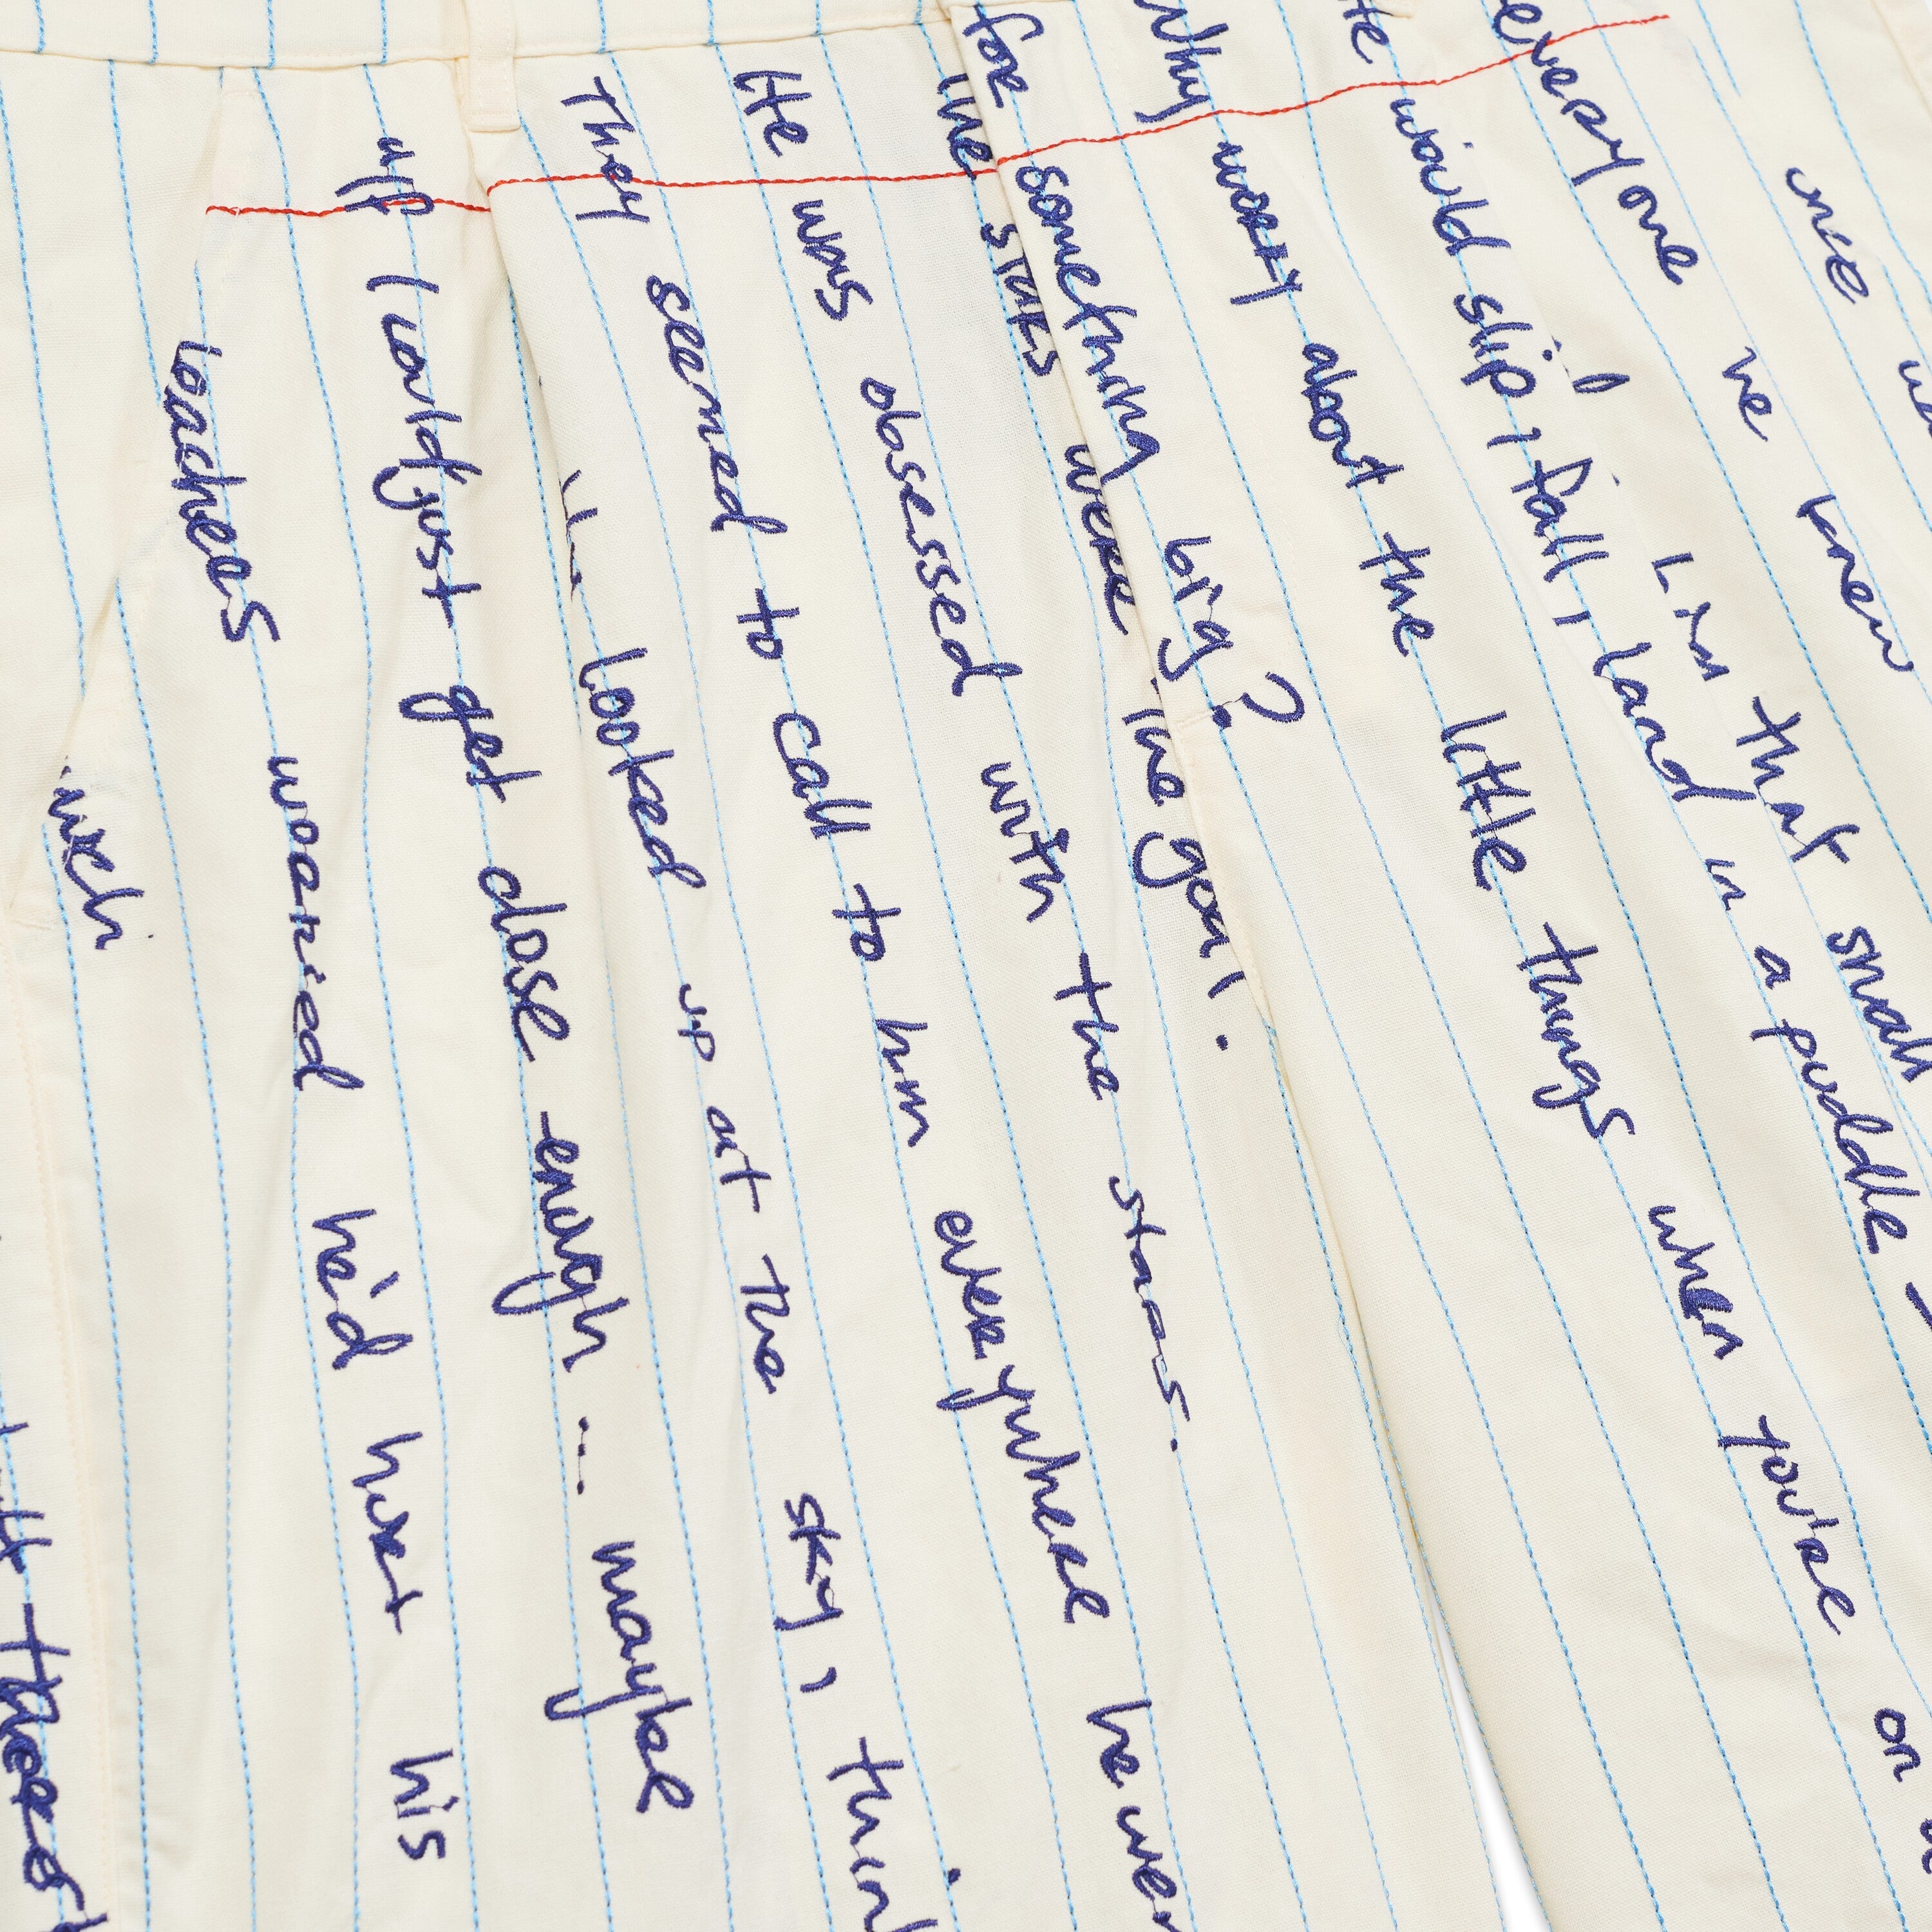 once
everyone he knew
him that small
He would slip, fall, land in a puddle
Why worry about the little things when you're on
for something big?
The stars were the goal.
He was obsessed with the stars.
They seemed to call to him everywhere he
looked up at the sky,
"If I could just get close enough ... maybe
teachers worried he'd hurt his